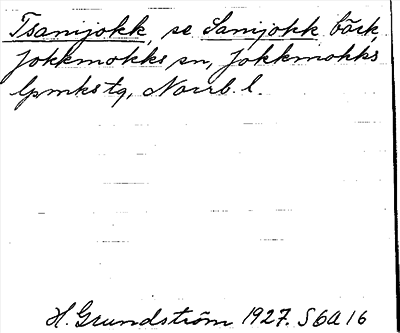 Tsanijokk, se Sanijokk bäck,
Jokkmokks sn, Jokkmokks
lpmkstg, Norrb. l.
H. Grundström 1927. S6A16